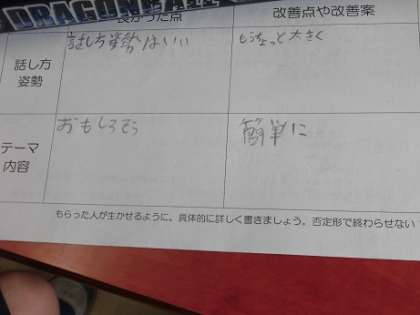 DRAGON BALL
良かった点 改善点や改善案
話し方
姿勢
話し方姿勢はいい
もうちょっと大きく
テーマ
内容
おもしろそう
簡単に
もらった人が生かせるように、具体的に詳しく書きましょう。否定形で終わらせない